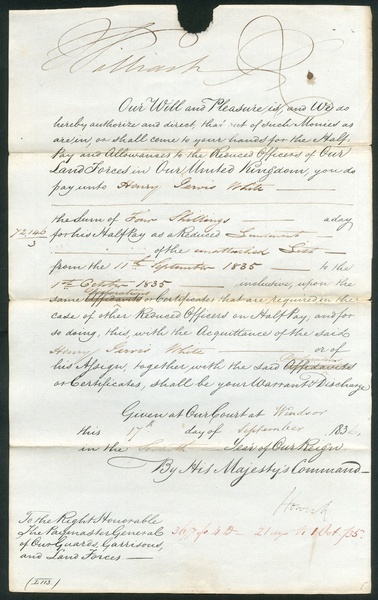 William R
Our Will and Pleasure is, and We do
hereby authorize and direct, that out of such Monies as
are in, or shall come to your hands for the Half
Pay and Allowances to the Reduced Officers of Our
Land Forces in Our United Kingdom, you do
pay unto Henry Jarvis White
the Sum of Four Shillings a day
72,146
3
for his Half Pay as a Reduced Lieutenant
of the unattached List
from the 11th September 1835 to the
1st October 1835 inclusive, upon the
same Affidavits or Certificates that are required in the
case of other Reduced Officers on Half Pay, and for
so doing, this, with the Acquittance of the said
Henry Jarvis White or of
his Assign, together with the said Affidavits
or Certificates, shall be your Warrant & Discharge
Given at Our Court at Windsor
this 17th day of September 183
in the Year of Our Reign
By His Majesty's Command
Howick
To the Right Honorable
The Paymaster General
of Our Guards, Garrisons,
and Land Forces
21 1 Oct /35